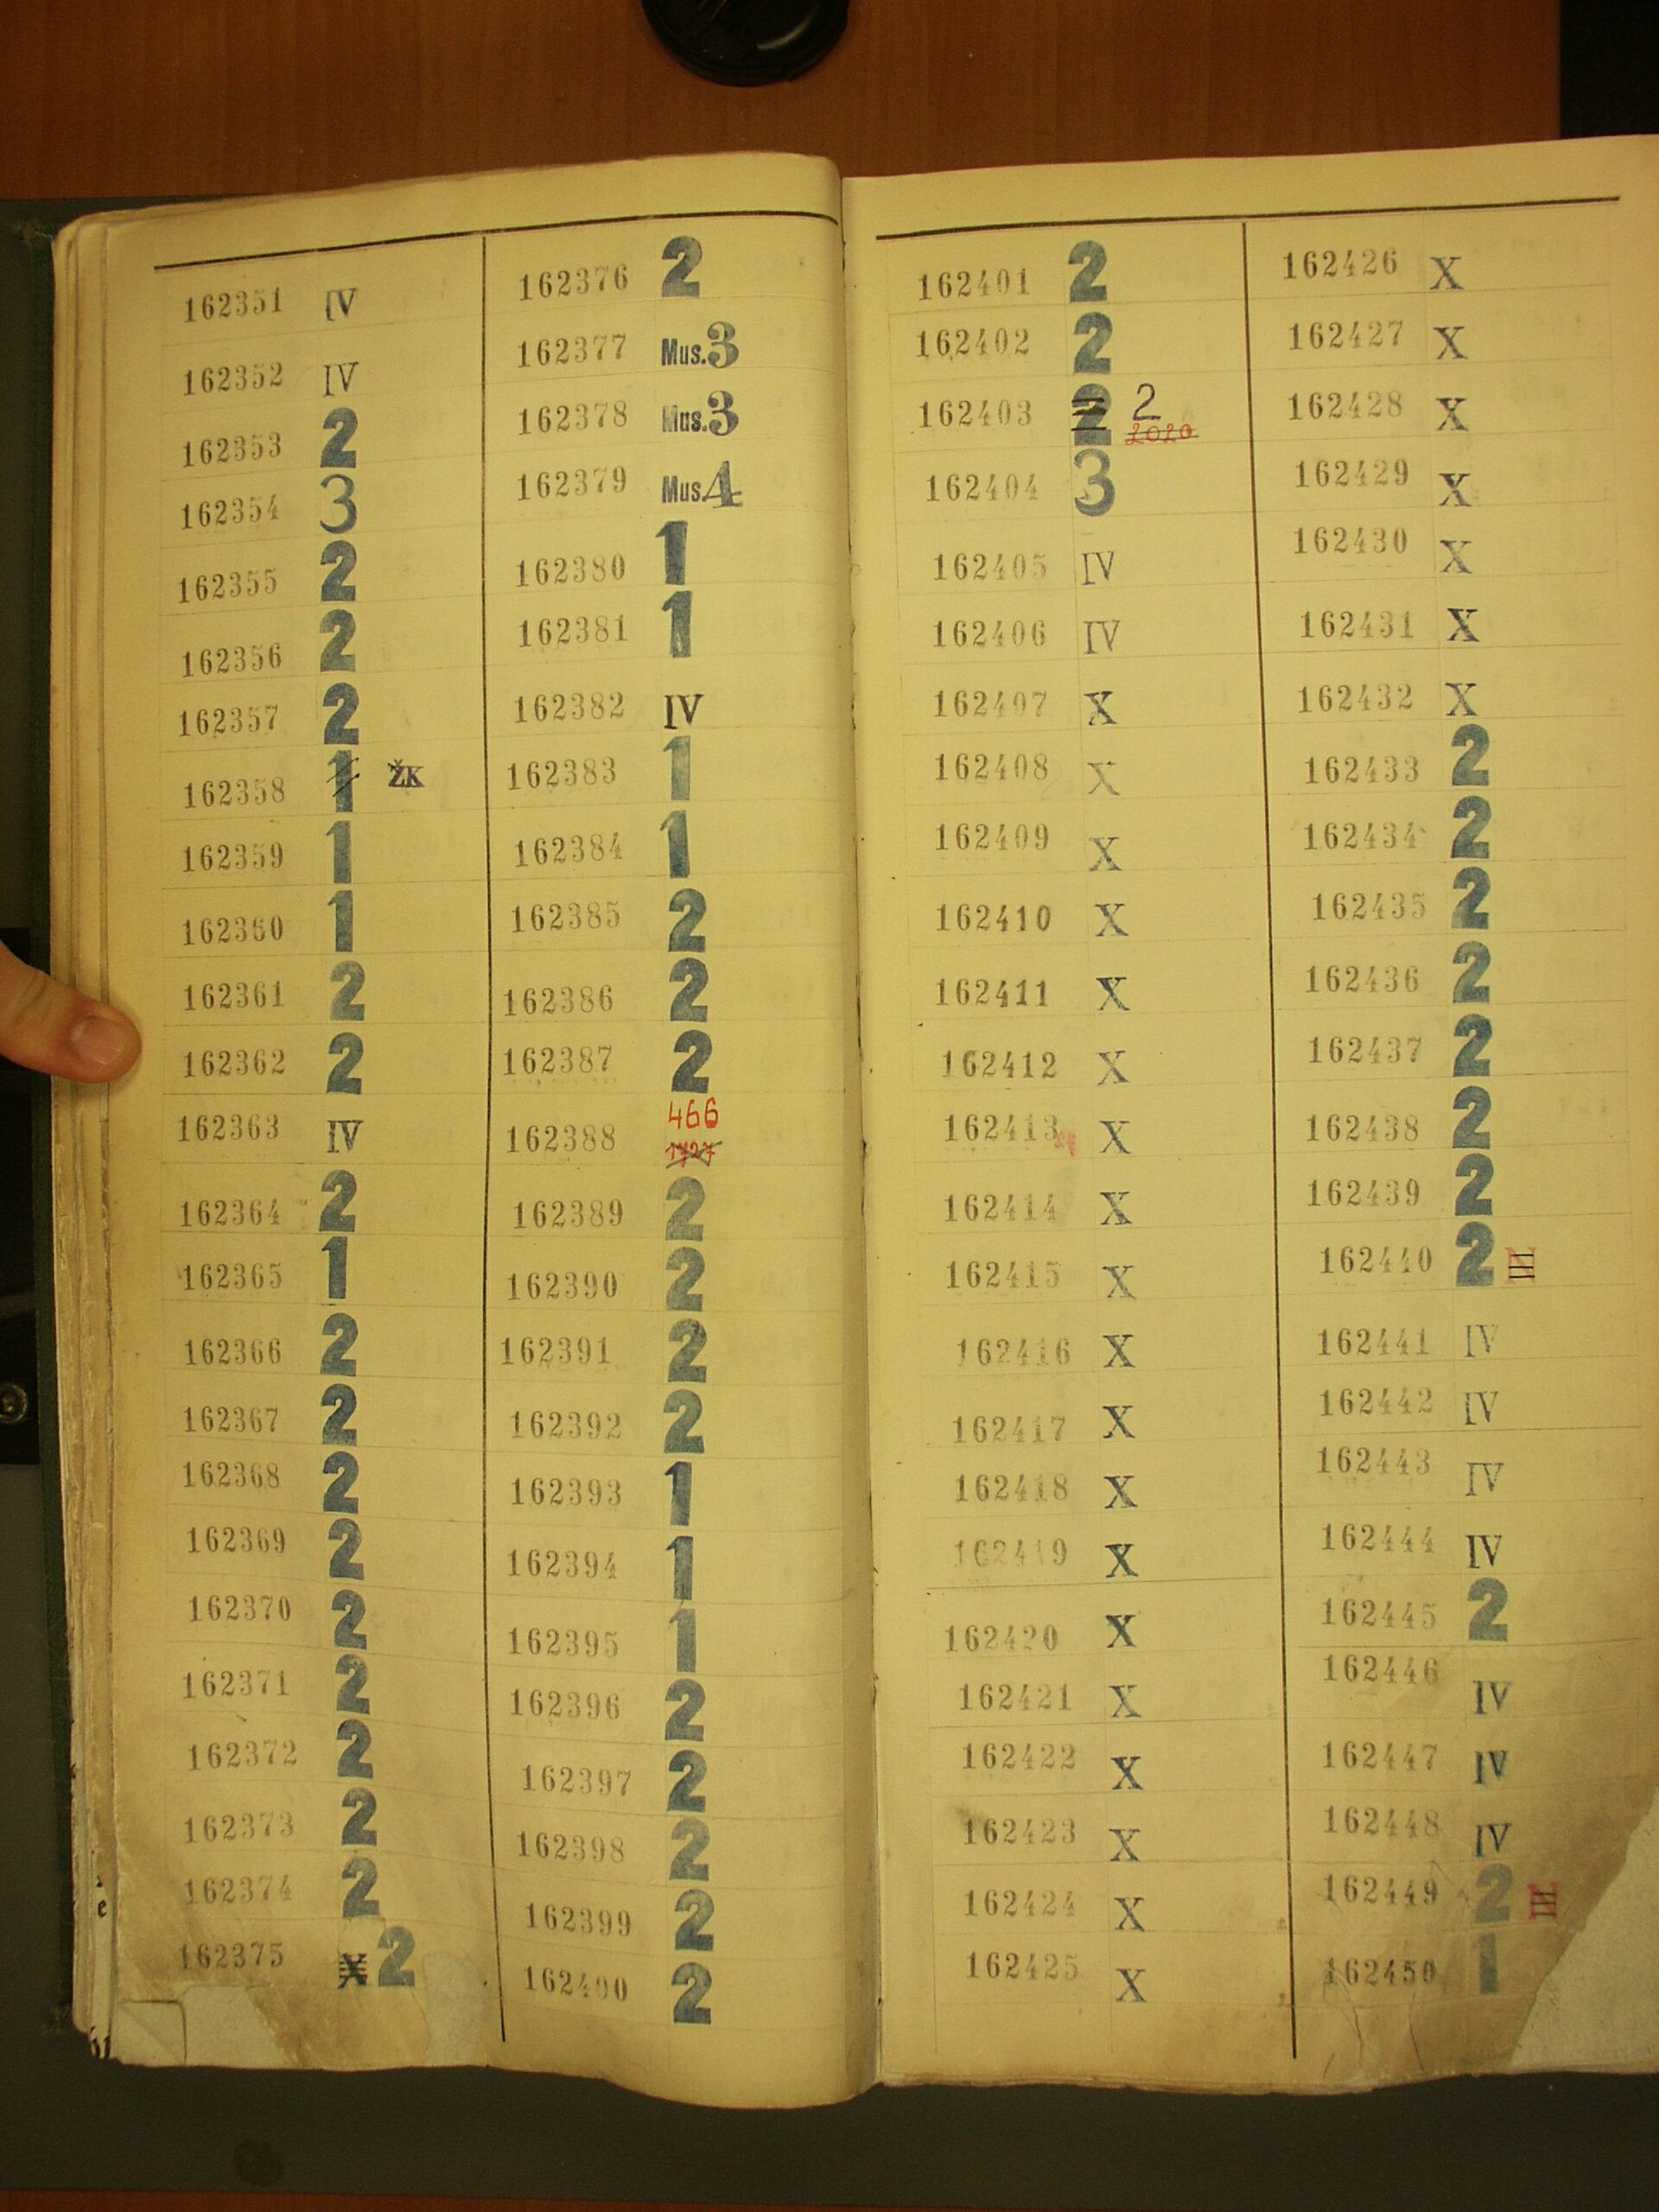 162351 IV
162352 IV
162353 2
162354 3
162355 2
162356 2
162357 2
162358 1 ŽK
162359 1
162360 1
162361 2
162362 2
162363 IV
162364 2
162365 1
162366 2
162367 2
162368 2
162369 2
162370 2
162371 2
162372 2
162373 2
162374 2
162375 X 2
162376 2
162377 Mus.3
162378 Mus.3
162379 Mus.4
162380 1
162381 1
162382 IV
162383 1
162384 1
162385 2
162386 2
162387 2
466
162388 1727
162389 2
162390 2
162391 2
162392 2
162393 1
162394 1
162395 1
162396 2
162397 2
162398 2
162399 2
162400 2
162401 2
162402 2
162403 2 2
2020
162404 3
162405 IV
162406 IV
162407 X
162408 X
162409 X
162410 X
162411 X
162412 X
162413 X
162414 X
162415 X
162416 X
162417 X
162418 X
162419 X
162420 X
162421 X
162422 X
162423 X
162424 X
162425 X
162426 X
162427 X
162428 X
162429 X
162430 X
162431 X
162432 X
162433 2
162434 2
162435 2
162436 2
162437 2
162438 2
162439 2
162440 2
162441 IV
162442 IV
162443 IV
162444 IV
162445 2
162446 IV
162447 IV
162448 IV
162449 2
162450 1